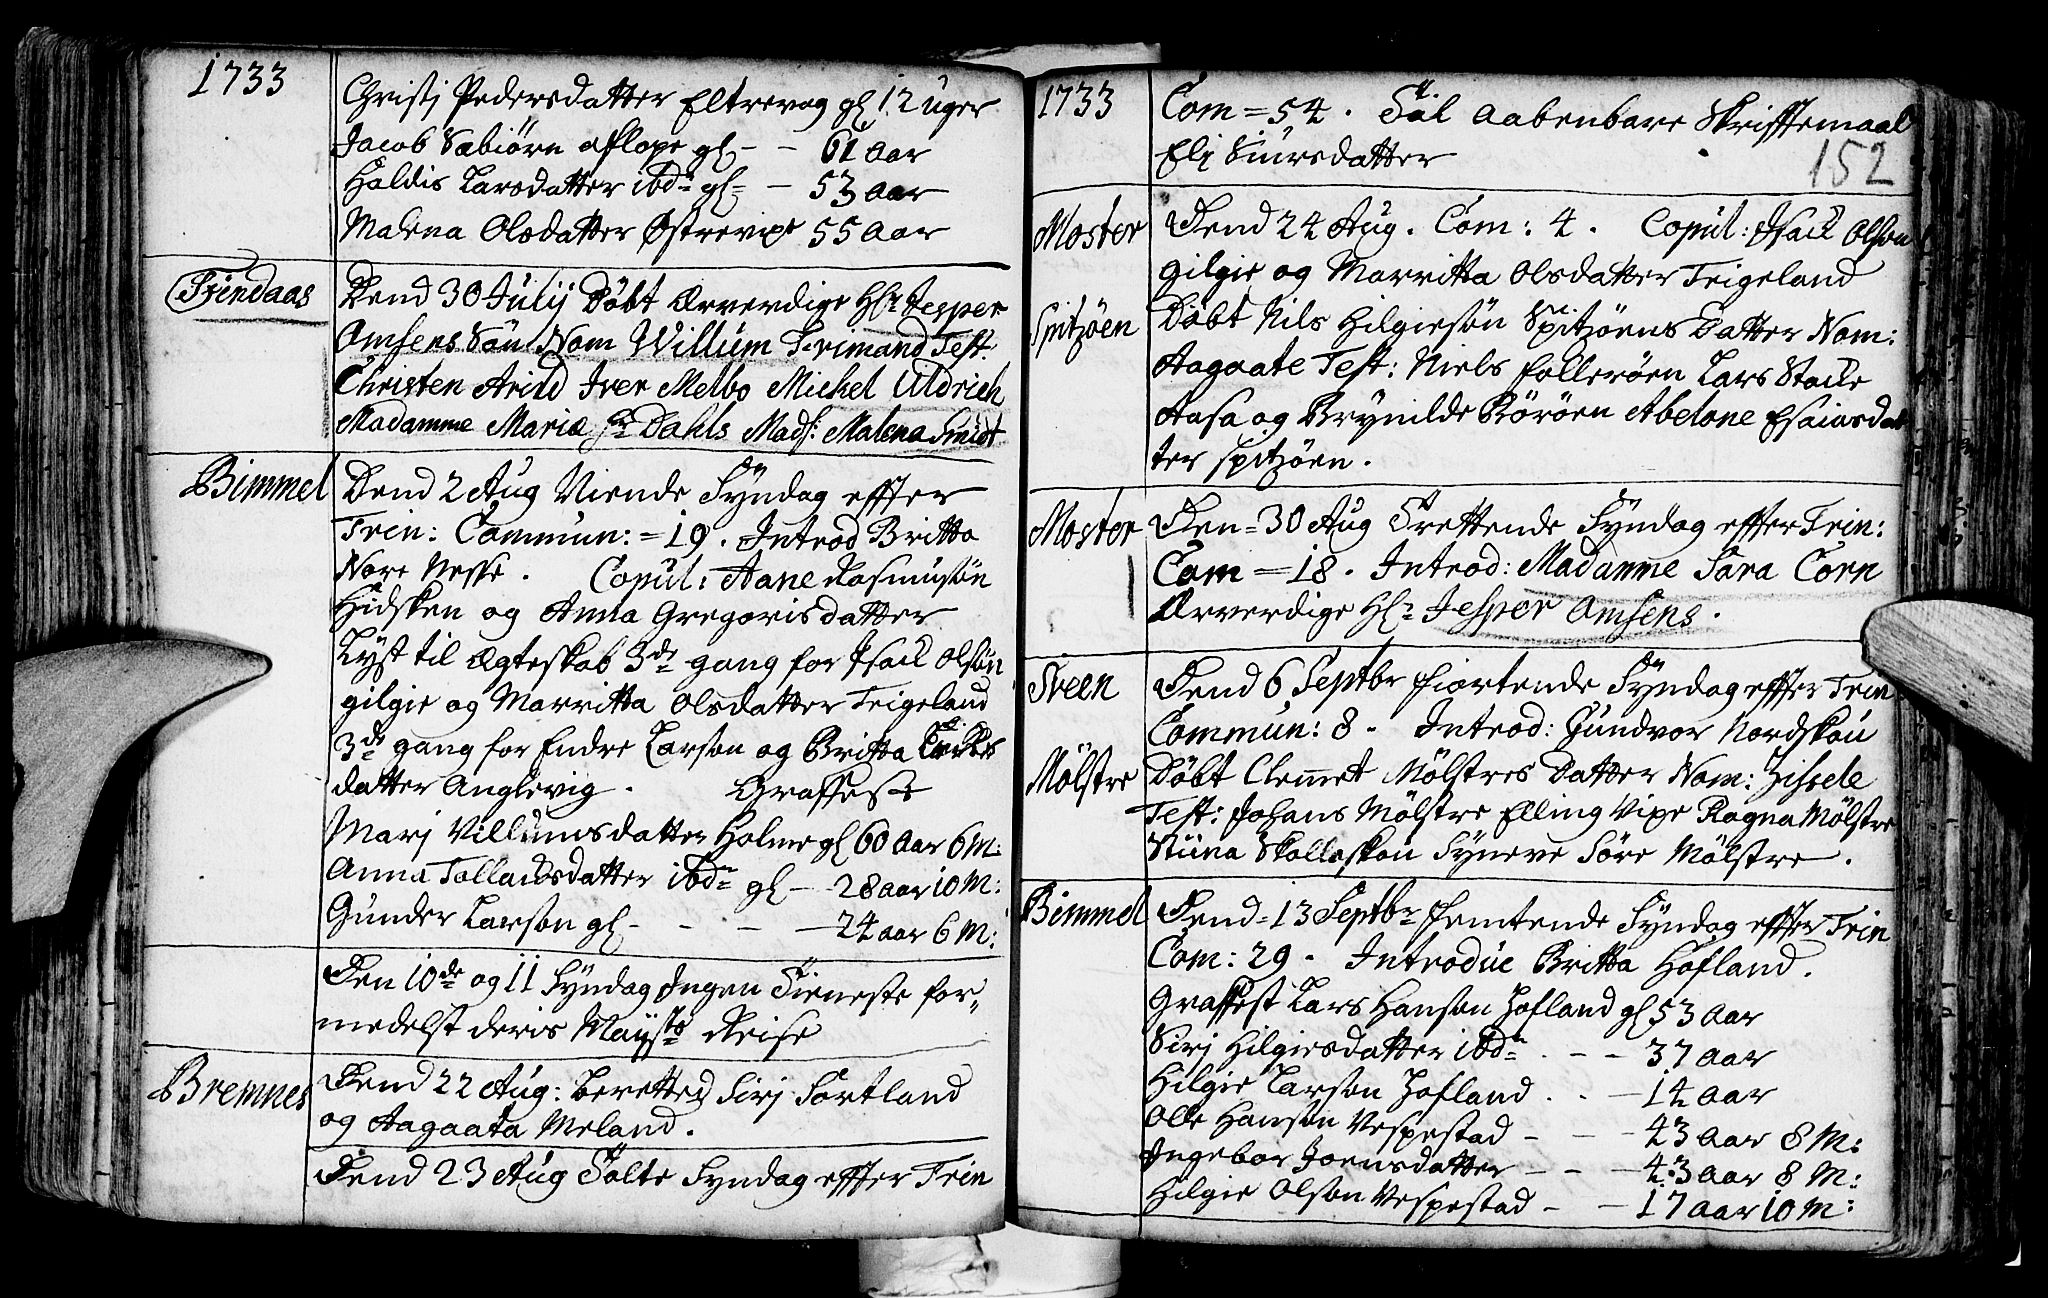 1733
Christj Pedersdatter Eltrevag gl 12 Uger
Jacob Sæbiörn afløpe gl - - 61 Aar
Haldis Larsdatter ibdm gl - - 53 Aar
Malena Olsdatter Østrevixe 55 Aar
Findaas
Dend 30 Julij Döbt Ærverdige Hr Jesper
Amsens Søn Nom Willum Frimand Test.
Christen Arild Iver Melbo Michel Uldrich
Madamme Maria Sr Dahls Mads: Malena Smidt
Bömmel
Dend 2 Aug Niende Syndag effter
Trin: Commun: = 19. Introd Britta
Nore Nesse. Copul: Aane Rasmusön
Hidsken og Anna Gregorisdatter
Lyst til Ægteskab 3de gang for Isack Olsøn
gilgie og Marritta Olsdatter Teigeland
3de gang for Endre Larson og Britta
datter Anglevig. Graffest
Marj Villumsdatter Holme gl 60 Aar 6 M:
Anna Tollachsdatter ibdm gl - - 28 aar 10 M:
Gunder Larson gl - - - 24 aar 6 M:
Den 10de og 11 Syndag Ingen Tieneste for-
medelst deris Mayts Reise
Bremnes
Dend 22 Aug: Beretted Sirj Sortland
og Aagaata Meland.
Dend 23 Aug Tolte Syndag effter Trin
1733
Com = 54. Tül Aabenbare Skrifftemaal
Elj Siursdatter
152
Moster
Dend 24 Aug. Com: 4. Copul: Isack Olson
gilgie og Marritta Olsdatter Teigeland
Spitzöen
Döbt Nils Hilgiesön Spitzöens Datter Nom:
Aagaate Test: Niels Folleröen Lars Stacke
Aasa og Brynilde Böröen Abelone Esaiasdat
ter Spitzöen.
Moster
Den = 30 Aug Trettende Syndag effter Trin:
Com = 18. Introd: Madamme Sara Corn
Ærverdige Hr Jesper Amsens.
Sveen
Dend 6 Septbr Fiortende Syndag effter Trin
Commun: 8. Introd: Gundvor Nordskou
Mölstre
Döbt Clemmet Mölstres Datter Nom: Zissele
Test: Johans Mölstre Elling Vixe Ragna Mölstre
Stiina Skolleskou Syneve Söre Mölstre.
Bömmel
Dend = 13 Septbr Femtende Syndag effter Trin
Com: 29. Introdue Britta Hofland.
Graffest Lars Hanson Hofland gl 53 Aar
Sirj Hilgiesdatter ibdm - - 37 Aar
Hilgie Larson Hofland - - 14 Aar
Olle Hanson Vespestad - - 43 Aar 8 M:
Ingebor Joensdatter - - 43 Aar 8 M:
Hilgie Olson Vespestad - - 17 Aar 10 M: